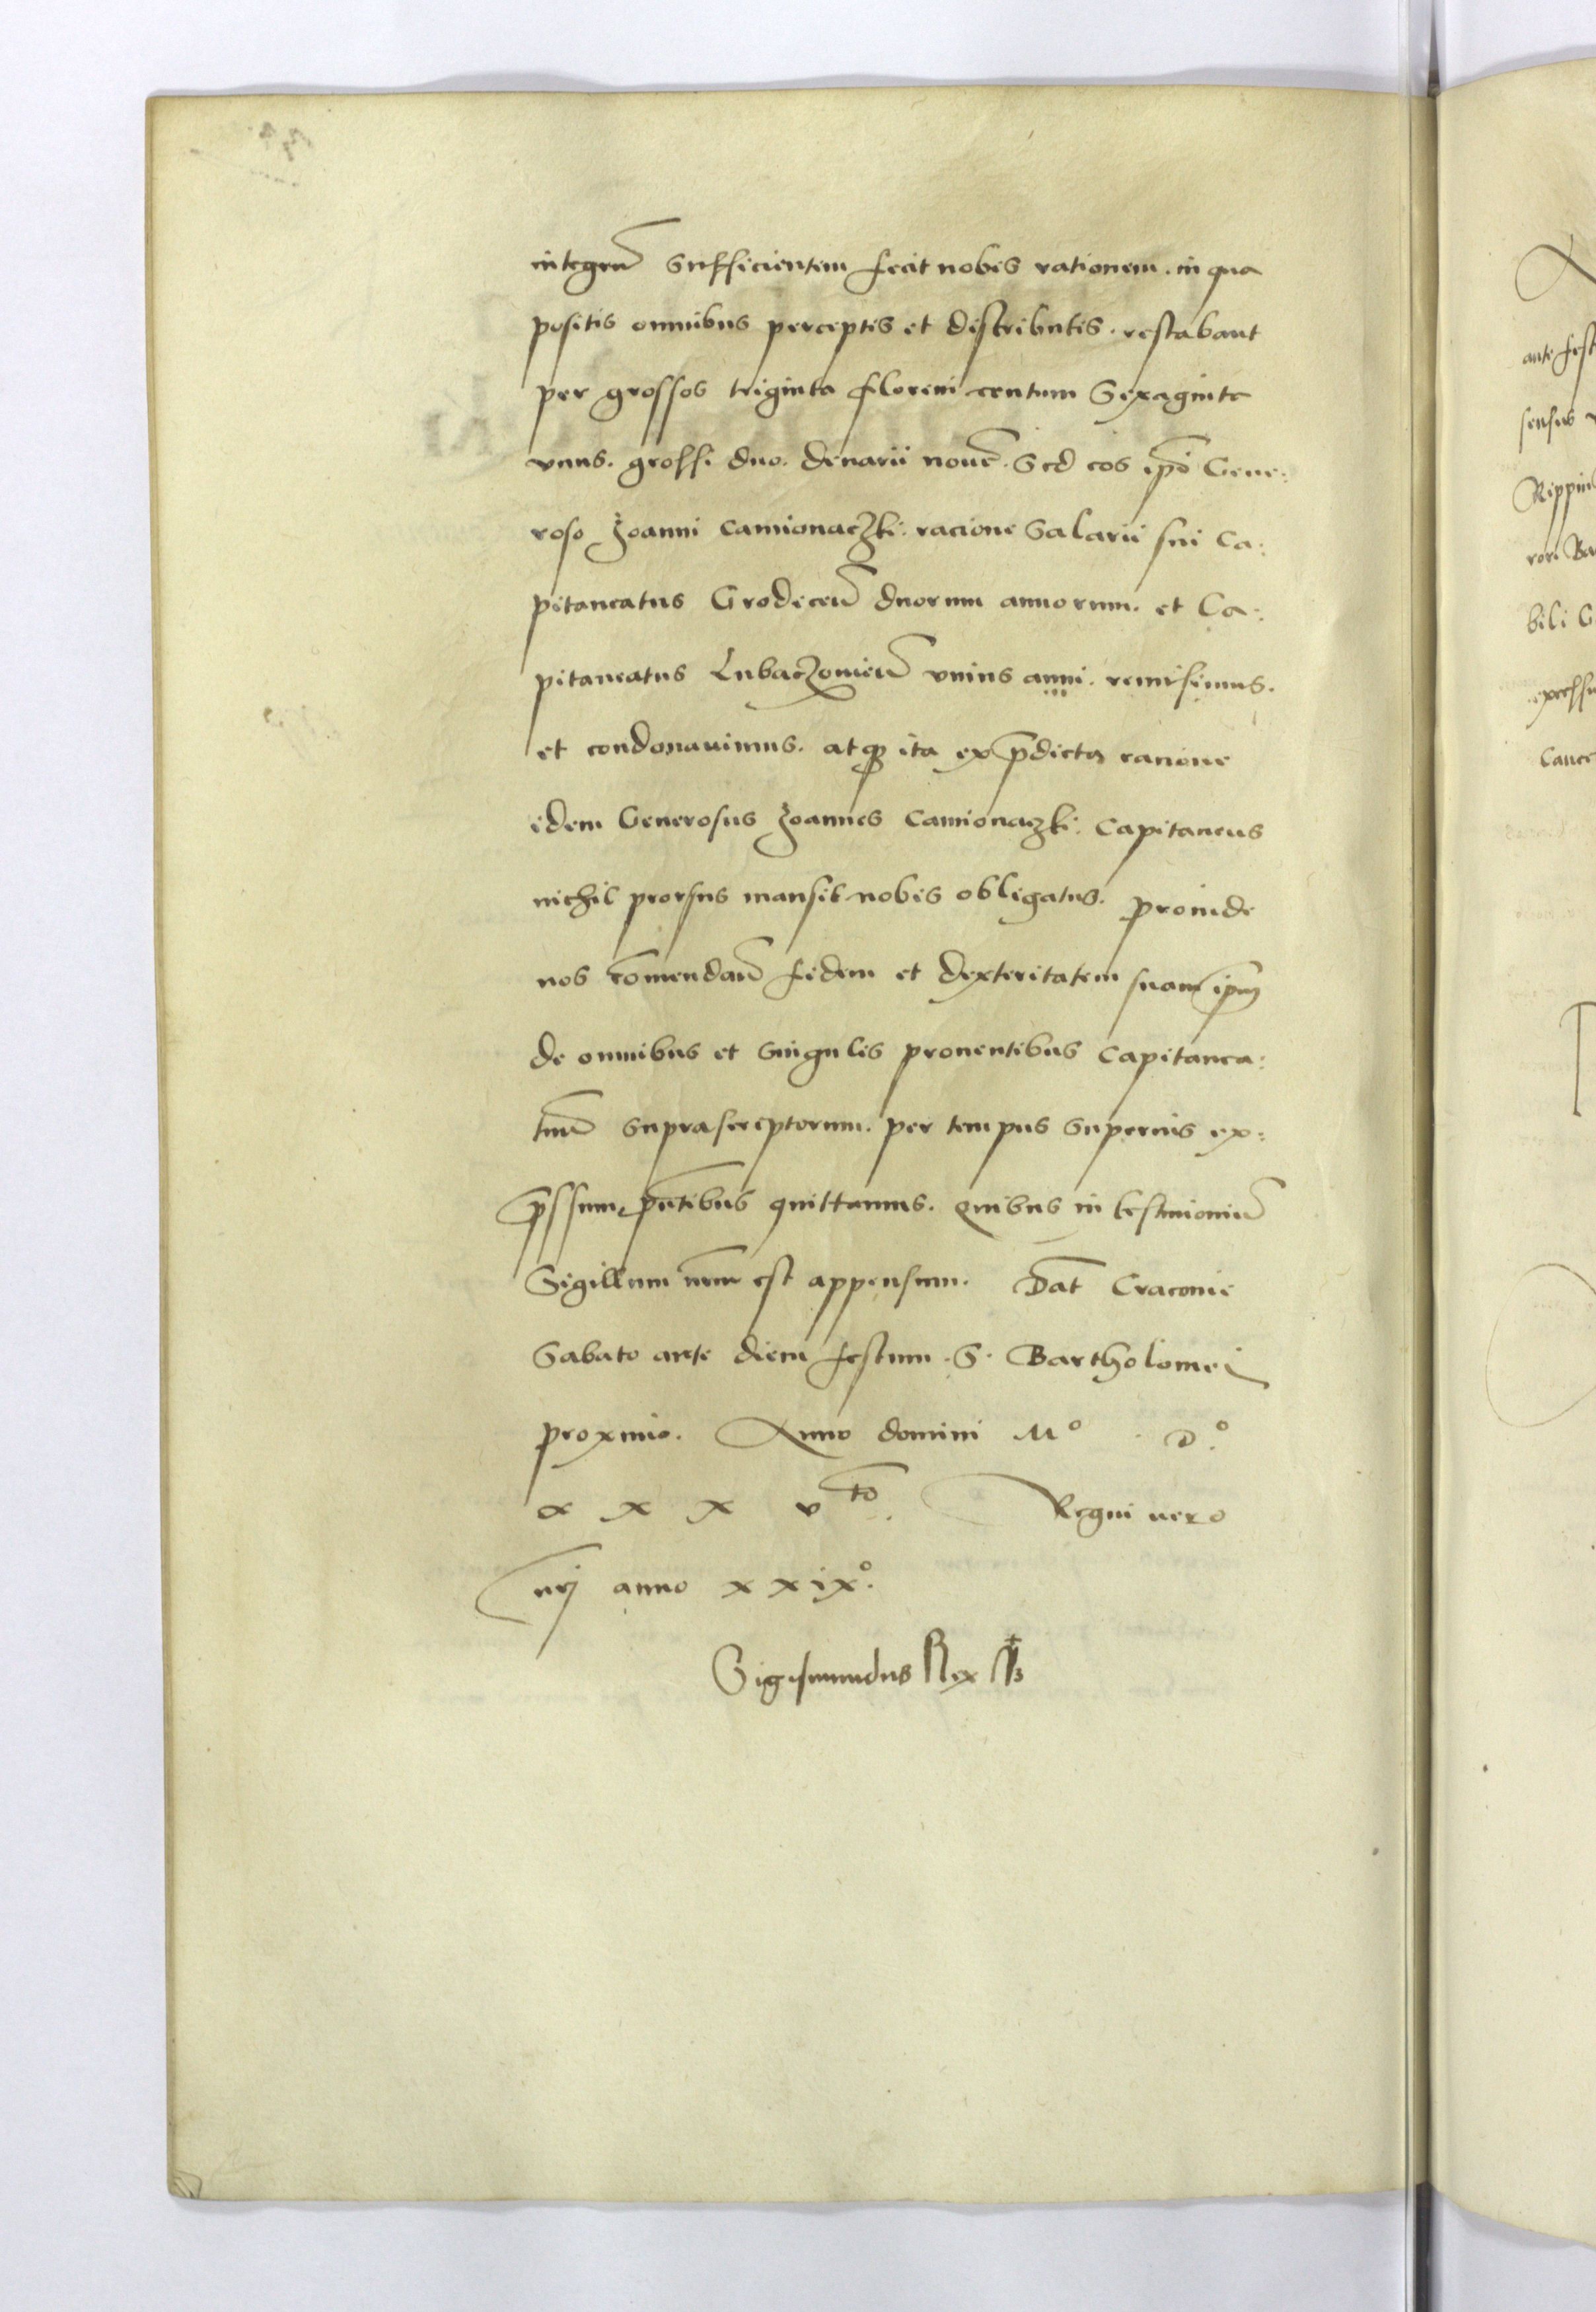 integrū sufficientem fecit nobis rationem. in qua
positis omnibus perceptis et distributis. restabant
per grossos triginta floreni centum Sexaginta
vnus. grossi duo. denarii nouē. Sed eos ip̄o Gene:
roso Joanni Camionaczki: racione Salarii sui Ca:
pitaneatus Grodeceñ duorum annorum. et Ca:
pitaneatus Lubaczouieñ vnius anni. remisimus.
et condonauimus. atq3 ita ex p̄dicta racione
idem Generosus Joannes Camionaczki: Capitaneus
nichil prorsus mansit nobis obligatus. proinde
nos cōmendañ fidem et dexteritatem suam ip̄m
de omnibus et singulis prouentibus Capitanea:
tuū suprascriptorum. per tempus superius ex:
p̄ssum p̄ntibus quittamus. Quibus in testimoniū
Sigillum nr̄m est appensum. Dat̄ Cracouie
Sabato ante diem festum S. Bartholomei
proximo. Anno domini Mº Dº.
x x x vto. Regni vero
nr̄j anno xxixº.
Sigismundus Rex
ante fest
senses
Rippin
rori Ba
bili G
Cance